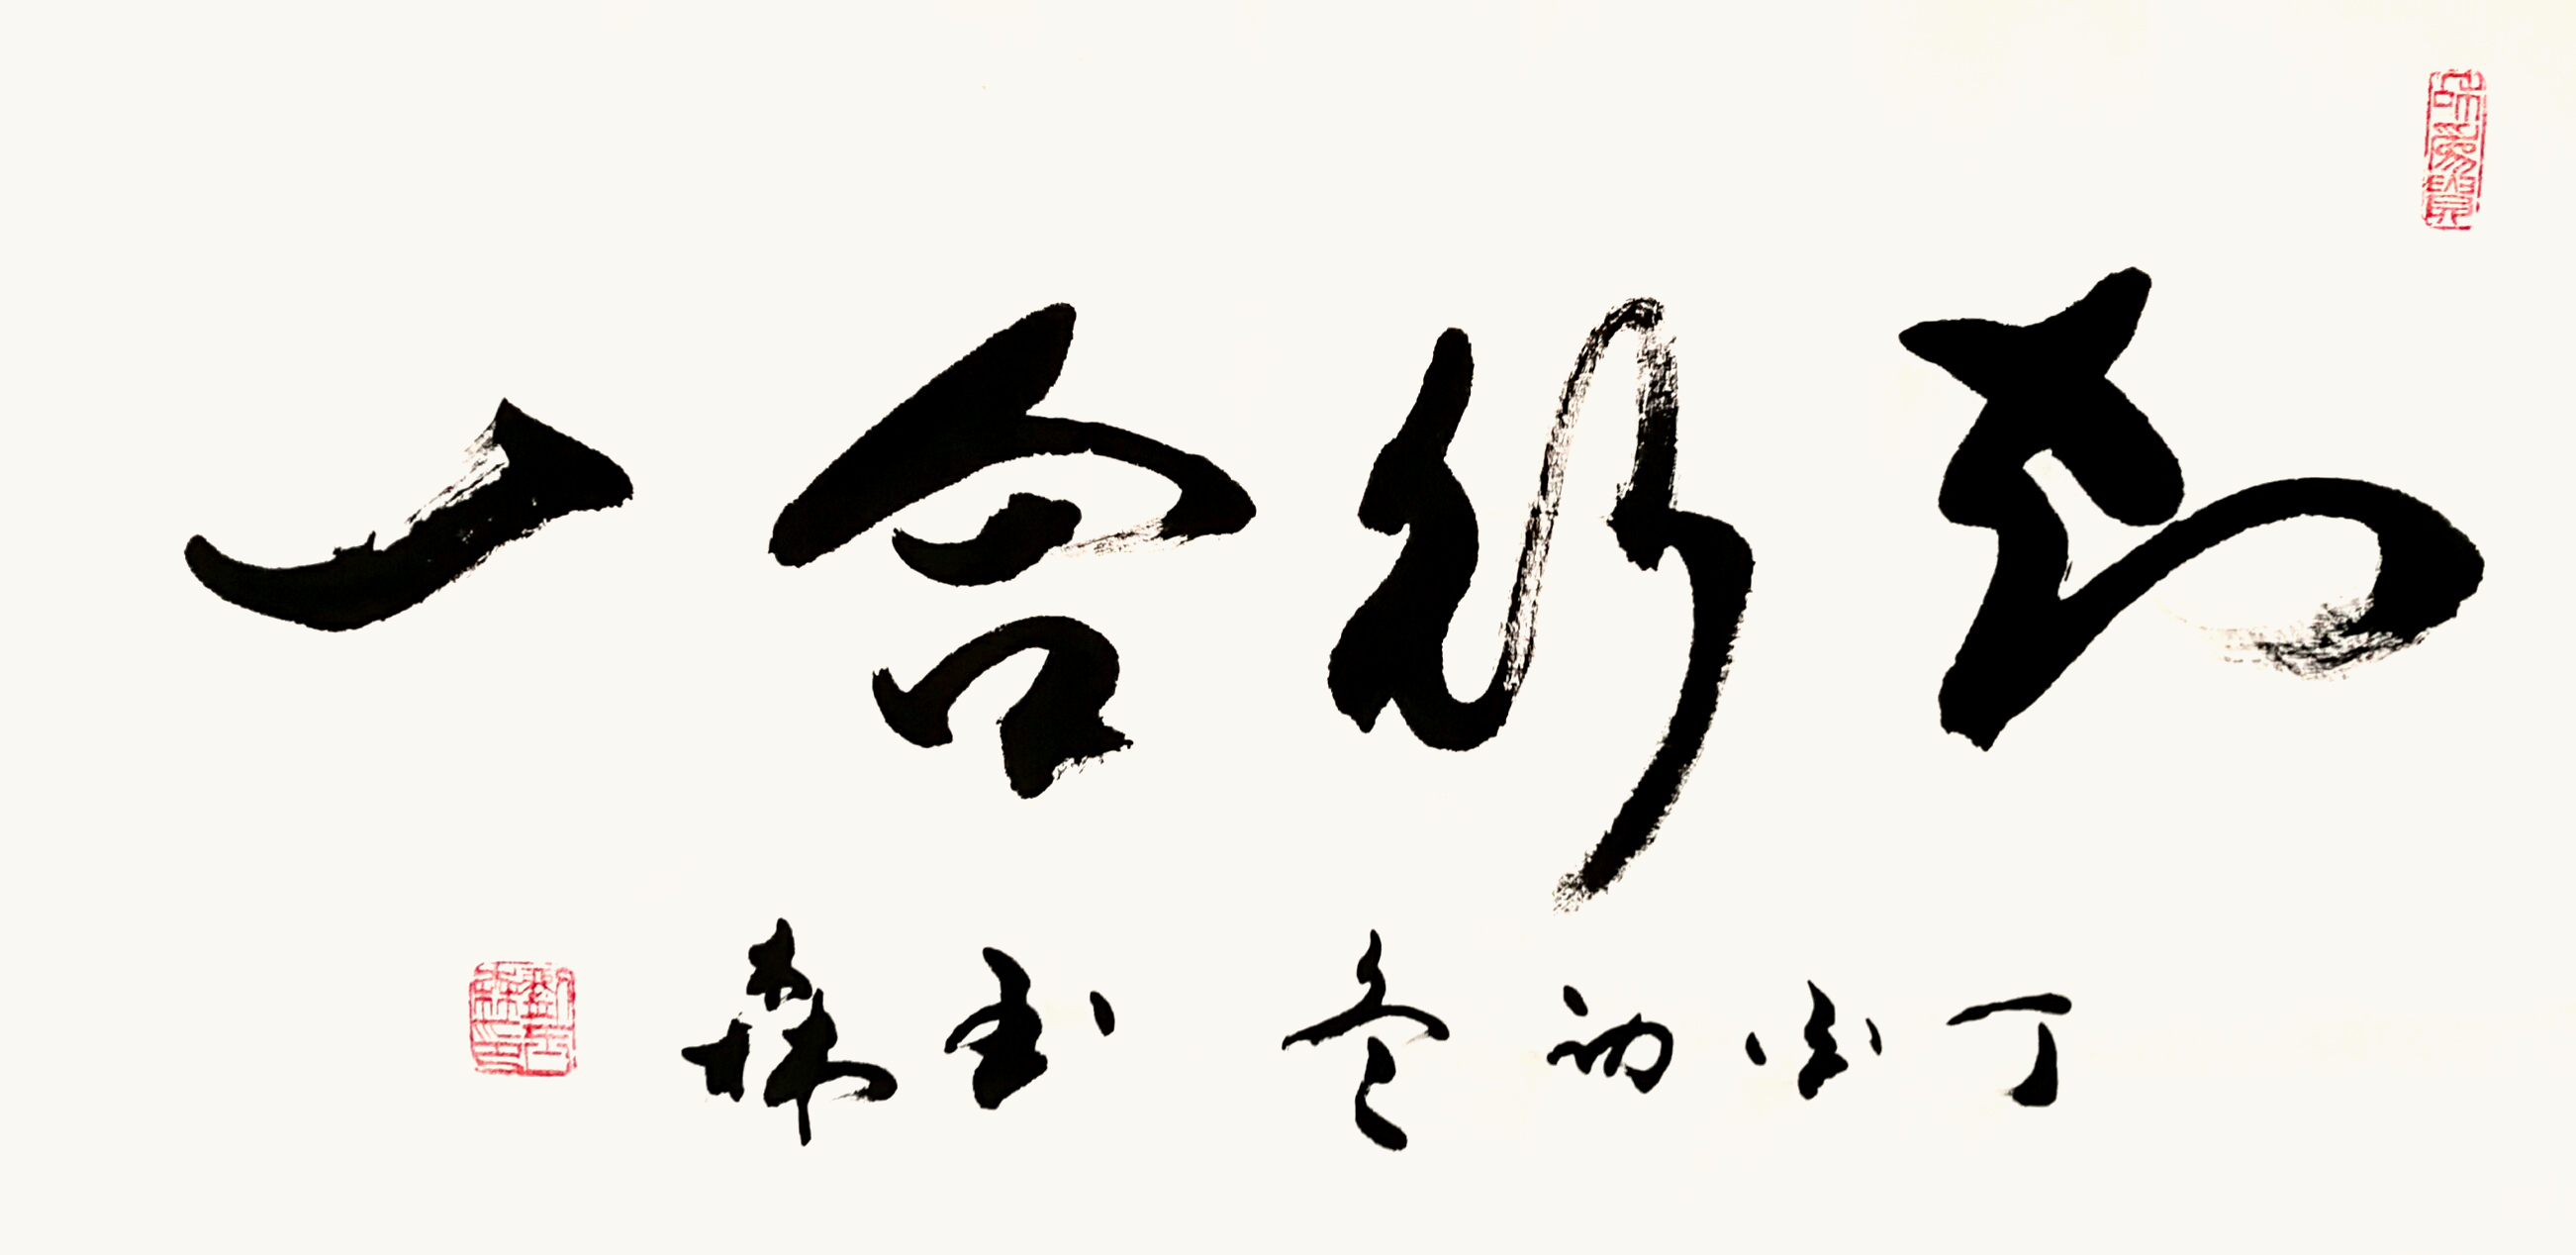 知行合一
丁酉初冬 森